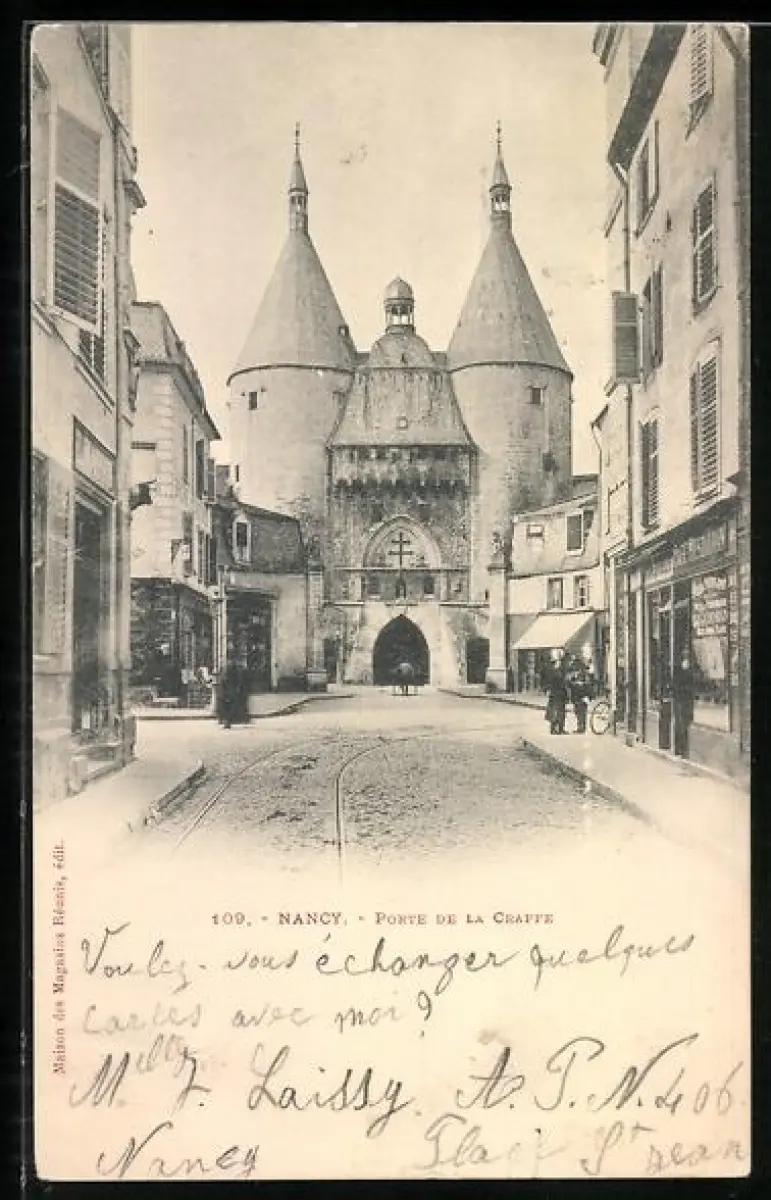 109. - NANCY. - PORTE DE LA CRAFFE
Maison des Magasins Réunis, édit.
Voulez-vous échanger quelques
cartes avec moi?
Mlle J. Laissy. A. P. N. 406
Nancy Place St Jean